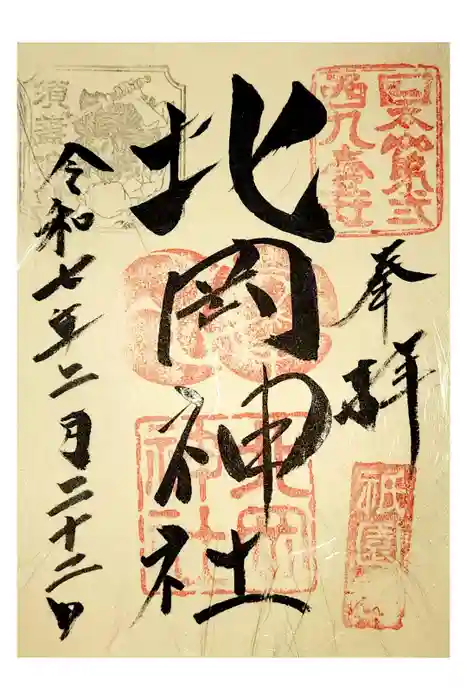 奉拝
北岡神社
令和七年二月二十二日
北岡神社
祇園